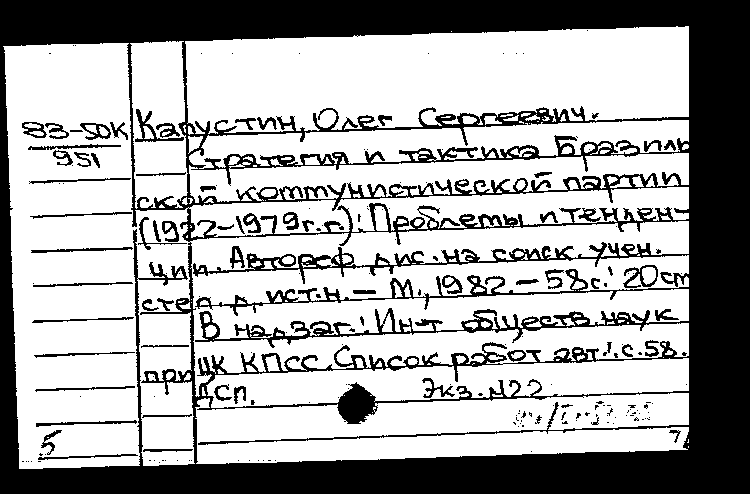 83-50К Капустин, Олег Сергеевич.
951 Стратегия и тактика Бразиль
ской коммунистической партии
(1922-1979г.г.): Проблемы и тенден-
ции. Автореф. дис. на соиск. учен.
степ. д. ист. н. — М., 1982. — 58с.; 20см
В надзаг.: Ин-т обществ. наук
при ЦК КПСС. Список работ авт.: с. 58.
ДСП. Экз. №22.
5